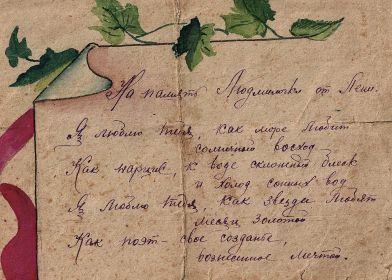 На память Людмилочки от Лени.
Я люблю тебя, как море любит
солнечный восход
Как нарцис, к воде склонений блеск
и холод сонних вод
Я люблю тебя, как звезды любят
месяц золотой
Как поэт - свое созданье,
вознесенное мечтой.